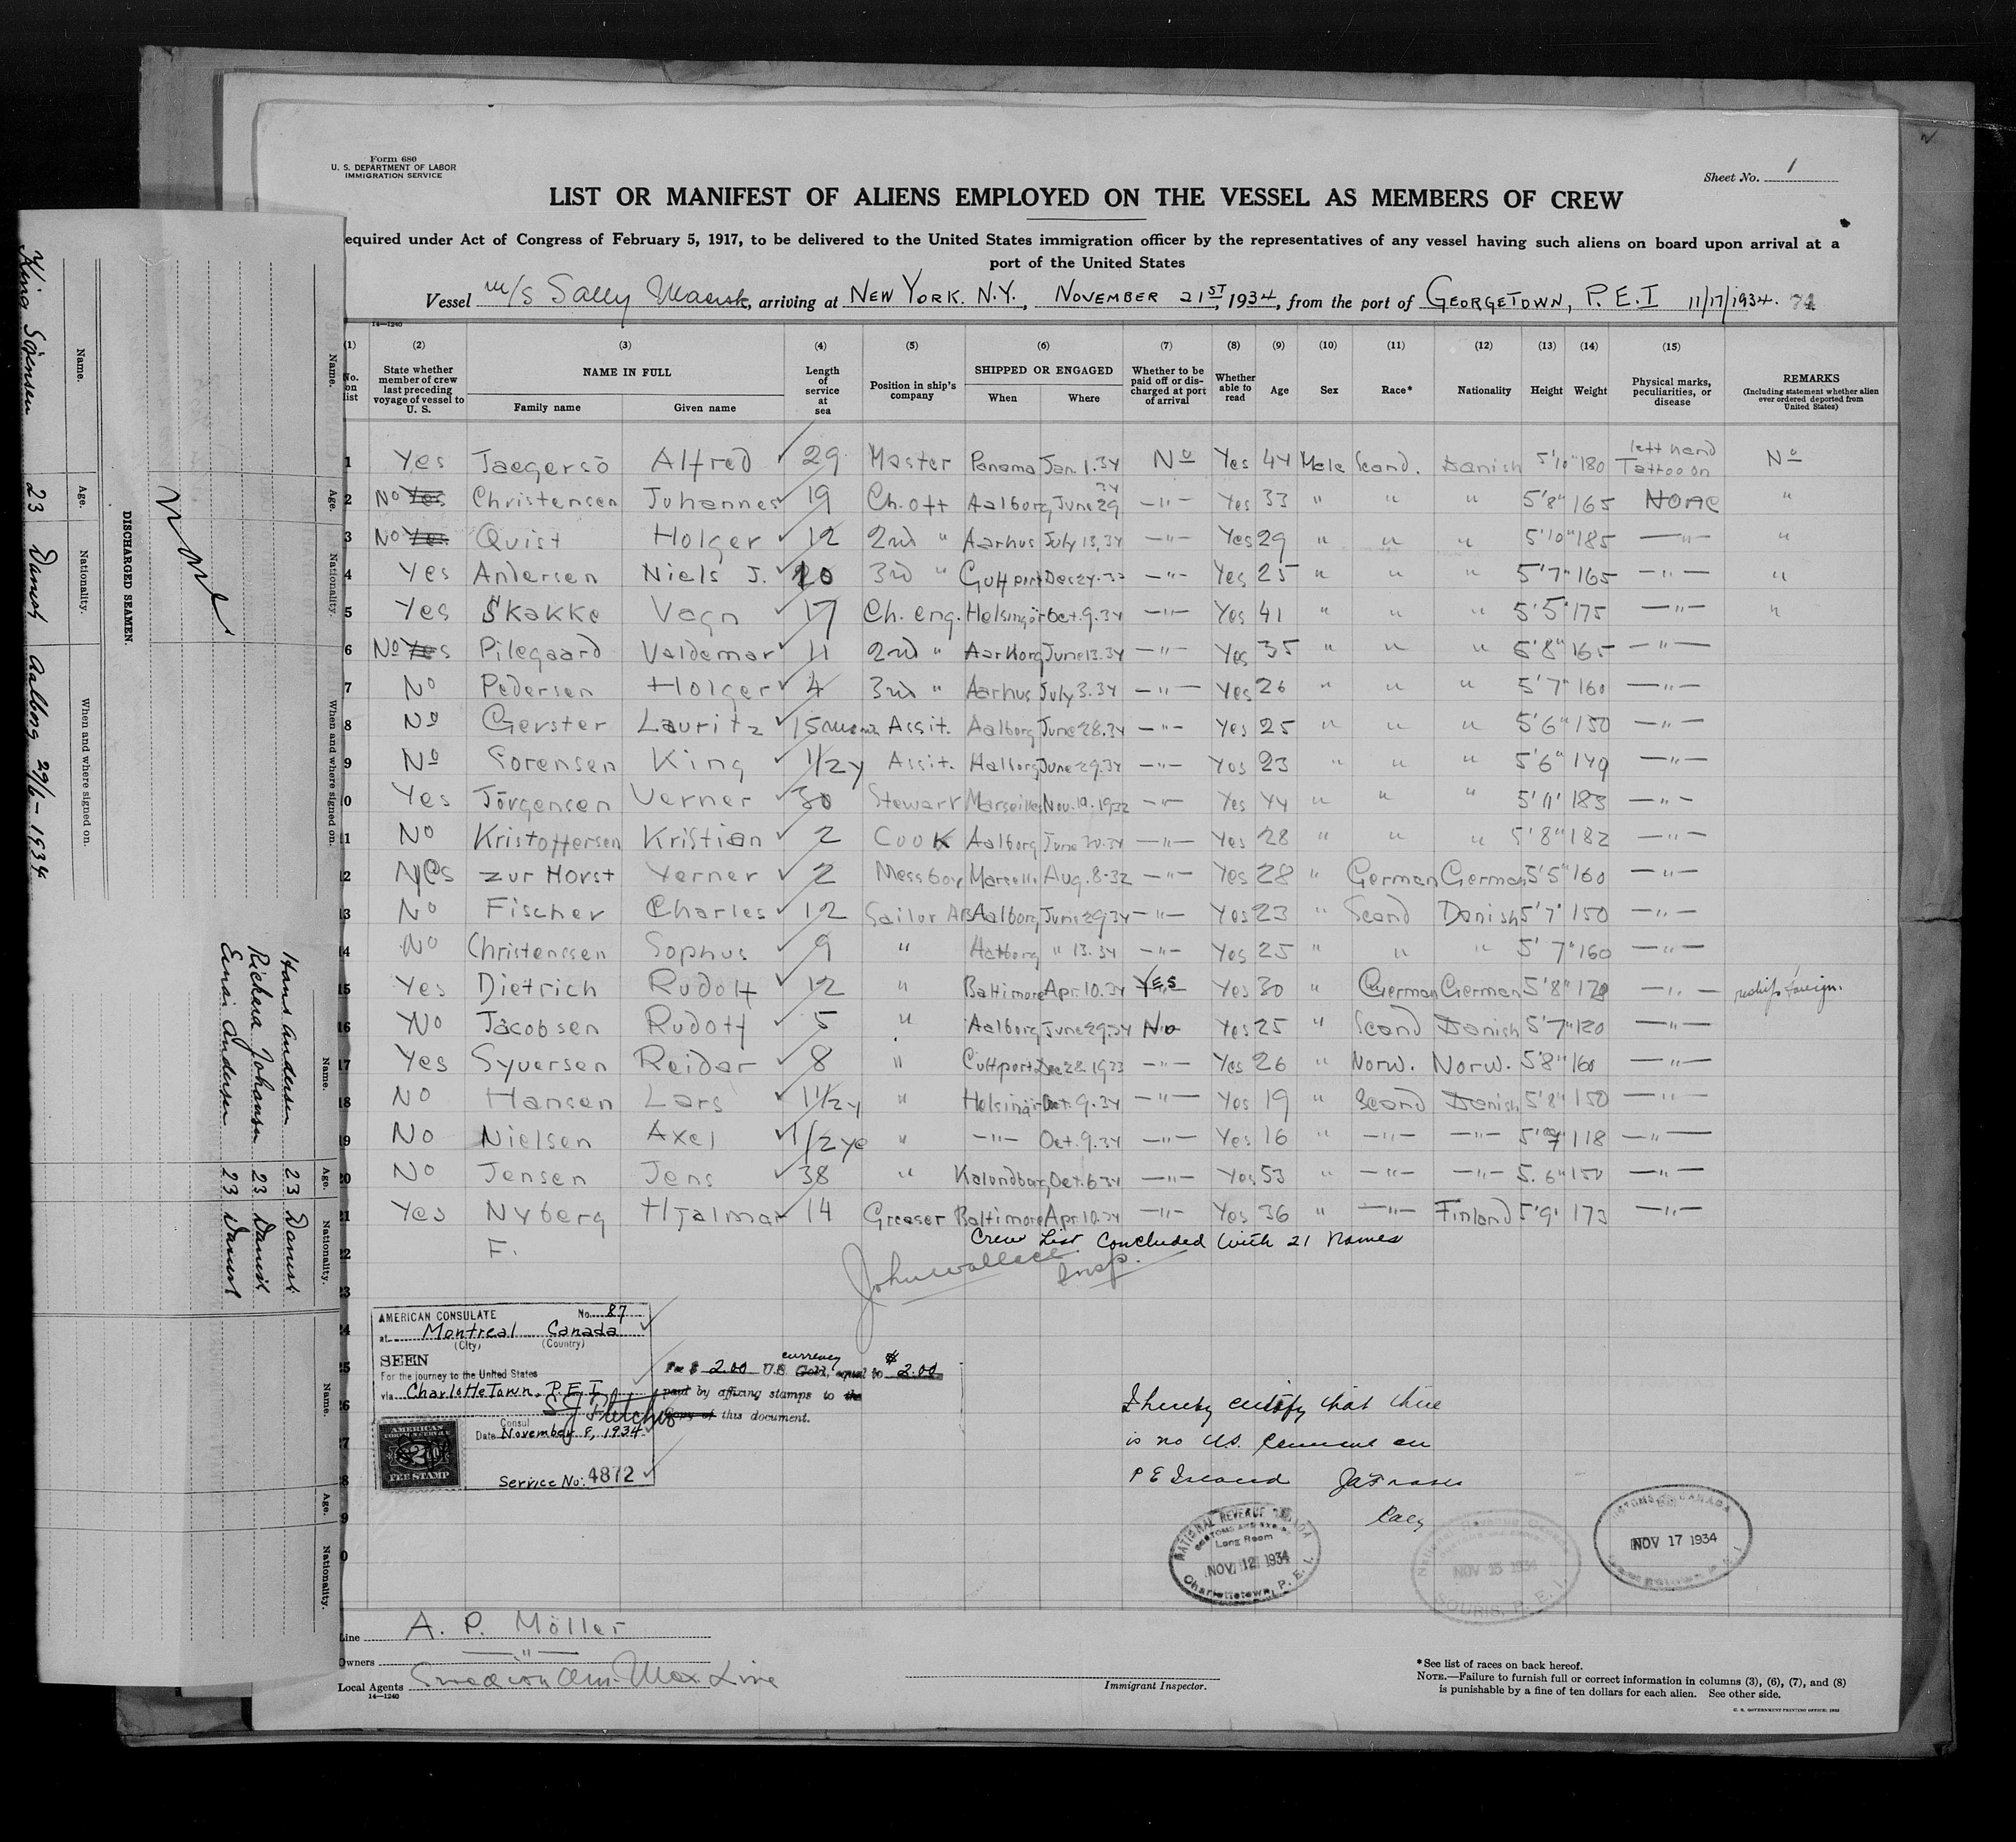 Form 680
U. S. DEPARTMENT OF LABOR
IMMIGRATION SERVICE
Sheet No. 1
LIST OR MANIFEST OF ALIENS EMPLOYED ON THE VESSEL AS MEMBERS OF CREW
equired under Act of Congress of February 5, 1917, to be delivered to the United States immigration officer by the representatives of any vessel having such aliens on board upon arrival at a
port of the United States
Vessel M/S Sally Maersk, arriving at NEW YORK. N.Y., NOVEMBER 21ST, 1934, from the port of GEORGETOWN, P.E.I 11/17/1934.
14—1240
(1) (2) (3) (4) (5) (6) (7) (8) (9) (10) (11) (12) (13) (14) (15)
No. on list
State whether member of crew last preceding voyage of vessel to U. S.
NAME IN FULL
Family name
Given name
Length of service at sea
Position in ship's company
SHIPPED OR ENGAGED
When
Where
Whether to be paid off or discharged at port of arrival
Whether able to read
Age
Sex
Race*
Nationality
Height
Weight
Physical marks, peculiarities, or disease
REMARKS
(Including statement whether alien ever ordered deported from United States)
1 Yes Jaegersö Alfred ✓ 29 Master Panama Jan. 1. 34 No Yes 44 Male Scand. Danish 5'10" 180 left hand Tattoo on No
2 No Yes Christensen Johannes ✓ 19 Ch. off Aalborg June 29 34 —"— Yes 33 " " " 5'8" 165 None "
3 No Yes Quist Holger ✓ 12 2nd " Aarhus July 13, 34 —"— Yes 29 " " " 5'10" 185 —"— "
4 Yes Andersen Niels J. ✓ 10 3rd " Gulfport Dec 24. 33 —"— Yes 25 " " " 5'7" 165 —"— "
5 Yes Skakke Vagn ✓ 17 Ch. eng. Helsingör Oct. 9. 34 —"— Yes 41 " " " 5'5" 175 —"— "
6 No Yes Pilegaard Valdemar ✓ 11 2nd " Aalborg June 13. 34 —"— Yes 35 " " " 5'8" 165 —"—
7 No Pedersen Holger ✓ 4 3rd " Aarhus July 3. 34 —"— Yes 26 " " " 5'7" 160 —"—
8 No Gerster Lauritz ✓ 15 Assit. Aalborg June 28. 34 —"— Yes 25 " " " 5'6" 150 —"—
9 No Sorensen King ✓ 1/2 y Assit. Aalborg June 29. 34 —"— Yes 23 " " " 5'6" 149 —"—
10 Yes Jörgensen Verner ✓ 30 Stewart Marseilles Nov. 19. 1932 —"— Yes 44 " " " 5'11" 183 —"—
11 No Kristoffersen Kristian ✓ 2 Cook Aalborg June 30. 34 —"— Yes 28 " " " 5'8" 182 —"—
12 Yes zur Horst Verner ✓ 2 Messboy Marseille Aug. 8. 32 —"— Yes 28 " German German 5'5" 160 —"—
13 No Fischer Charles ✓ 12 Sailor AB Aalborg June 29. 34 —"— Yes 23 " Scand Danish 5'7" 150 —"—
14 No Christenssen Sophus ✓ 9 " Aalborg " 13. 34 —"— Yes 25 " " " 5'7" 160 —"—
15 Yes Dietrich Rudolf ✓ 12 " Baltimore Apr. 10. 34 YES Yes 30 " German German 5'8" —"— reship foreign.
16 No Jacobsen Rudolf ✓ 5 " Aalborg June 29. 34 No Yes 25 " Scand Danish 5'7" 120 —"—
17 Yes Syversen Reidar ✓ 8 " Gulfport Dec 28. 1933 —"— Yes 26 " Norw. Norw. 5'8" 160 —"—
18 No Hansen Lars ✓ 1 1/2 y " Helsingör Oct. 9. 34 —"— Yes 19 " Scand Danish 5'8" 150 —"—
19 No Nielsen Axel ✓ 1/2 ye " —"— Oct. 9. 34 —"— Yes 16 " —"— —"— 118 —"—
20 No Jensen Jens ✓ 38 " Kalundborg Oct. 6 34 —"— Yes 53 " —"— —"— 5. 6" 150 —"—
21 Yes Nyberg Hjalmar ✓ 14 Greaser Baltimore Apr. 10. 34 —"— Yes 36 " —"— Finland 5'9" 173 —"—
22 F. Crew List Concluded with 21 Names
23 John Wallace Insp.
AMERICAN CONSULATE No. 87
at Montreal Canada
(City) (Country)
SEEN
For the journey to the United States
via CharlotteTown, P.E.I.
Consul
Date November 8, 1934
AMERICAN
FEE STAMP
Service No: 4872
Fee $ 2.00 U.S. Gold, currency equal to $ 2.00
paid by affixing stamps to the
Copy of this document.
I hereby certify that there
is no U.S. Consul on
P E Island
NATIONAL REVENUE CANADA
CUSTOMS AND EXCISE
Long Room
NOV 12 1934
Charlottetown, P. E. I.
National Revenue Canada
NOV 15 1934
SOURIS, P. E. I.
CUSTOMS CANADA
NOV 17 1934
Line A. P. Möller
Owners —"—
Local Agents Swedish Am. Mex. Line
14—1240
Immigrant Inspector.
*See list of races on back hereof.
NOTE.—Failure to furnish full or correct information in columns (3), (6), (7), and (8)
is punishable by a fine of ten dollars for each alien. See other side.
U. S. GOVERNMENT PRINTING OFFICE: 1932
Name. Age. Nationality. When and where signed on.
King Sörensen 23 Danish Aalborg 29/6-1934
DISCHARGED SEAMEN.
None
Name. Age. Nationality. When and where signed on.
Name. Age. Nationality.
Hans Andersen 23 Danish
Richard Johansen 23 Danish
Einar Andersen 23 Danish
Name. Age. Nationality.